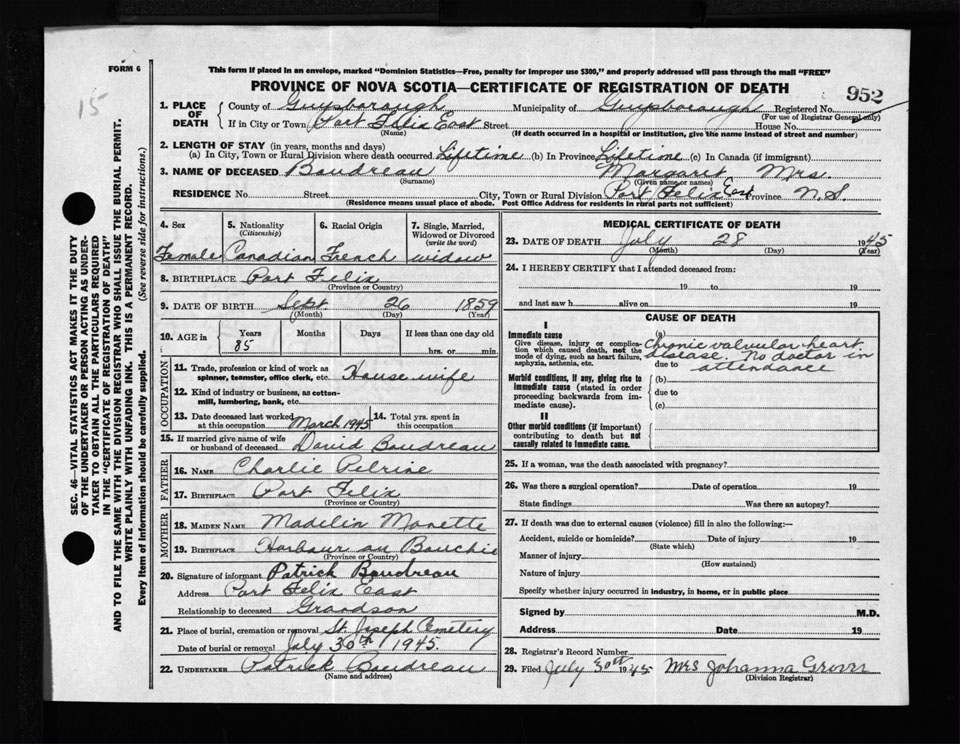 FORM 6
15
This form if placed in an envelope, marked "Dominion Statistics—Free, penalty for improper use $300," and properly addressed will pass through the mail "FREE"
PROVINCE OF NOVA SCOTIA—CERTIFICATE OF REGISTRATION OF DEATH
952
1. PLACE OF DEATH County of Guysborough Municipality of Guysborough Registered No.
(For use of Registrar General only)
If in City or Town Port Felix East Street House No.
(Name) (If death occurred in a hospital or institution, give the name instead of street and number)
2. LENGTH OF STAY (in years, months and days)
(a) In City, Town or Rural Division where death occurred Lifetime (b) In Province Lifetime (c) In Canada (if immigrant)
3. NAME OF DECEASED Boudreau Margaret Mrs.
(Surname) (Given name or names)
RESIDENCE No. Street City, Town or Rural Division Port Felix East Province N.S.
(Residence means usual place of abode. Post Office Address for residents in rural parts not sufficient)
SEC. 46—VITAL STATISTICS ACT MAKES IT THE DUTY
OF THE UNDERTAKER OR PERSON ACTING AS UNDER-
TAKER TO OBTAIN ALL THE PARTICULARS REQUIRED
IN THE "CERTIFICATE OF REGISTRATION OF DEATH"
AND TO FILE THE SAME WITH THE DIVISION REGISTRAR WHO SHALL ISSUE THE BURIAL PERMIT.
WRITE PLAINLY WITH UNFADING INK. THIS IS A PERMANENT RECORD.
Every item of Information should be carefully supplied. (See reverse side for instructions.)
4. Sex 5. Nationality 6. Racial Origin 7. Single, Married,
(Citizenship) Widowed or Divorced
(write the word)
Female Canadian French widow
8. BIRTHPLACE Port Felix
(Province or Country)
9. DATE OF BIRTH Sept. 26 1859
(Month) (Day) (Year)
10. AGE in Years Months Days If less than one day old
85 hrs. or min.
OCCUPATION
11. Trade, profession or kind of work as
spinner, teamster, office clerk, etc. House wife
12. Kind of industry or business, as cotton-
mill, lumbering, bank, etc.
13. Date deceased last worked at this occupation March 1945 14. Total yrs. spent in this occupation
15. If married give name of wife
or husband of deceased David Boudreau
FATHER
16. NAME Charlie Pelrine
17. BIRTHPLACE Port Felix
(Province or Country)
MOTHER
18. MAIDEN NAME Madilin Manette
19. BIRTHPLACE Harbour au Bouchie
(Province or Country)
20. Signature of informant Patrick Boudreau
Address Port Felix East
Relationship to deceased Grandson
21. Place of burial, cremation or removal St. Joseph Cemetery
Date of burial or removal July 30th 1945.
22. UNDERTAKER Patrick Boudreau
(Name and address)
MEDICAL CERTIFICATE OF DEATH
23. DATE OF DEATH July 28 1945
(Month) (Day) (Year)
24. I HEREBY CERTIFY that I attended deceased from:
19 to 19
and last saw h alive on 19
CAUSE OF DEATH
I
Immediate cause (a) Chronic valvular heart
Give disease, injury or complica-
tion which caused death, not the disease. No doctor in
mode of dying, such as heart failure,
asphyxia, asthenia, etc. due to attendance
Morbid conditions, if any, giving rise to (b)
immediate cause (stated in order due to
proceeding backwards from im-
mediate cause). (c)
II
Other morbid conditions (if important)
contributing to death but not
causally related to immediate cause.
25. If a woman, was the death associated with pregnancy?
26. Was there a surgical operation? Date of operation 19
State findings Was there an autopsy?
27. If death was due to external causes (violence) fill in also the following:—
Accident, suicide or homicide? Date of injury 19
(State which)
Manner of injury
(How sustained)
Nature of injury
Specify whether injury occurred in industry, in home, or in public place
Signed by M.D.
Address Date 19
28. Registrar's Record Number
29. Filed July 30th 1945 Mrs Johanna Grover
(Division Registrar)